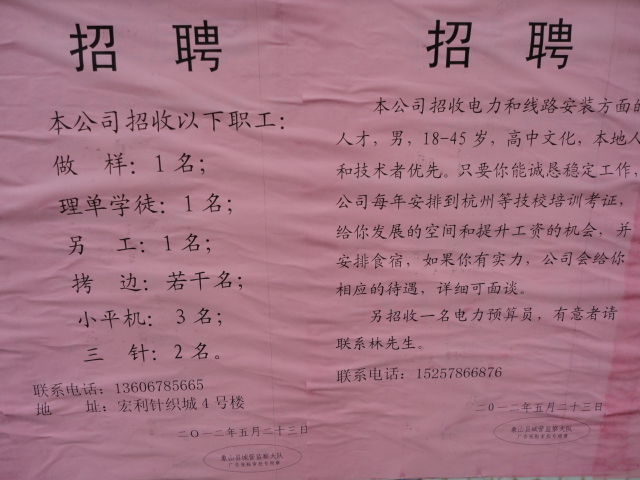 招 聘
本公司招收以下职工:
做 样: 1名;
理单学徒: 1名;
另 工: 1名;
拷 边: 若干名;
小平机: 3名;
三 针: 2名。
联系电话: 13606785665
地 址: 宏利针织城4号楼
二〇一二年五月二十三日
象山县城管监察大队
招 聘
本公司招收电力和线路安装方面的
人才, 男, 18-45岁, 高中文化, 本地人
和技术者优先。只要你能诚恳稳定工作,
公司每年安排到杭州等技校培训考证,
给你发展的空间和提升工资的机会, 并
安排食宿, 如果你有实力, 公司会给你
相应的待遇, 详细可面谈。
另招收一名电力预算员, 有意者请
联系林先生。
联系电话: 15257866876
二〇一二年五月二十三日
象山县城管监察大队